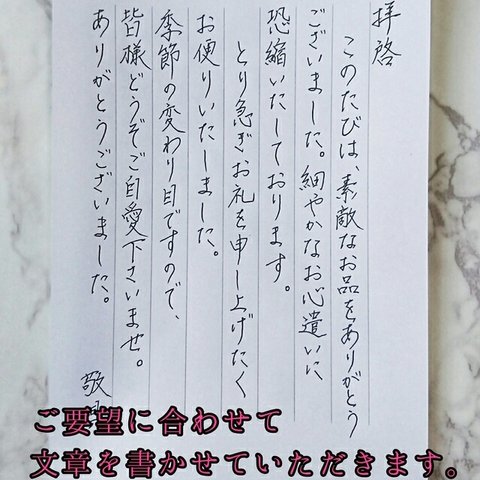 拝啓
このたびは、素敵なお品をありがとう
ございました。細やかなお心遣いに
恐縮いたしております。
とり急ぎお礼を申し上げたく
お便りいたしました。
季節の変わり目ですので、
皆様どうぞご自愛下さいませ。
ありがとうございました。
敬
ご要望に合わせて
文章を書かせていただきます。